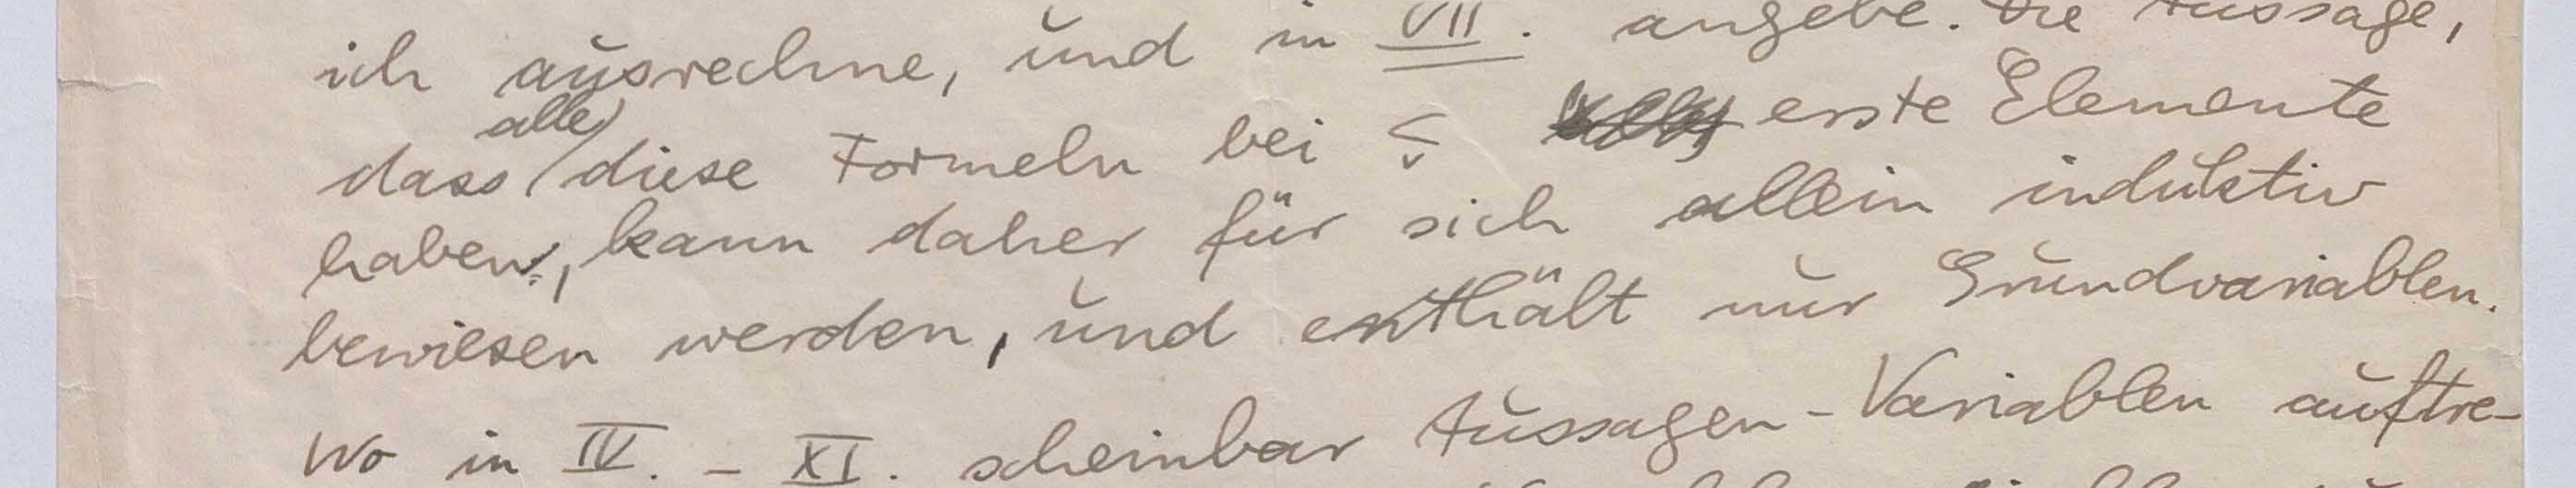 ich ausrechne, und in VII. angebe. Die Aussage,
dass alle diese Formeln bei erste Elemente
haben, kann daher für sich allein induktiv
bewiesen werden, und enthält nur Grundvariablen.
Wo in IV. – XI. scheinbar Aussagen-Variablen auftre-